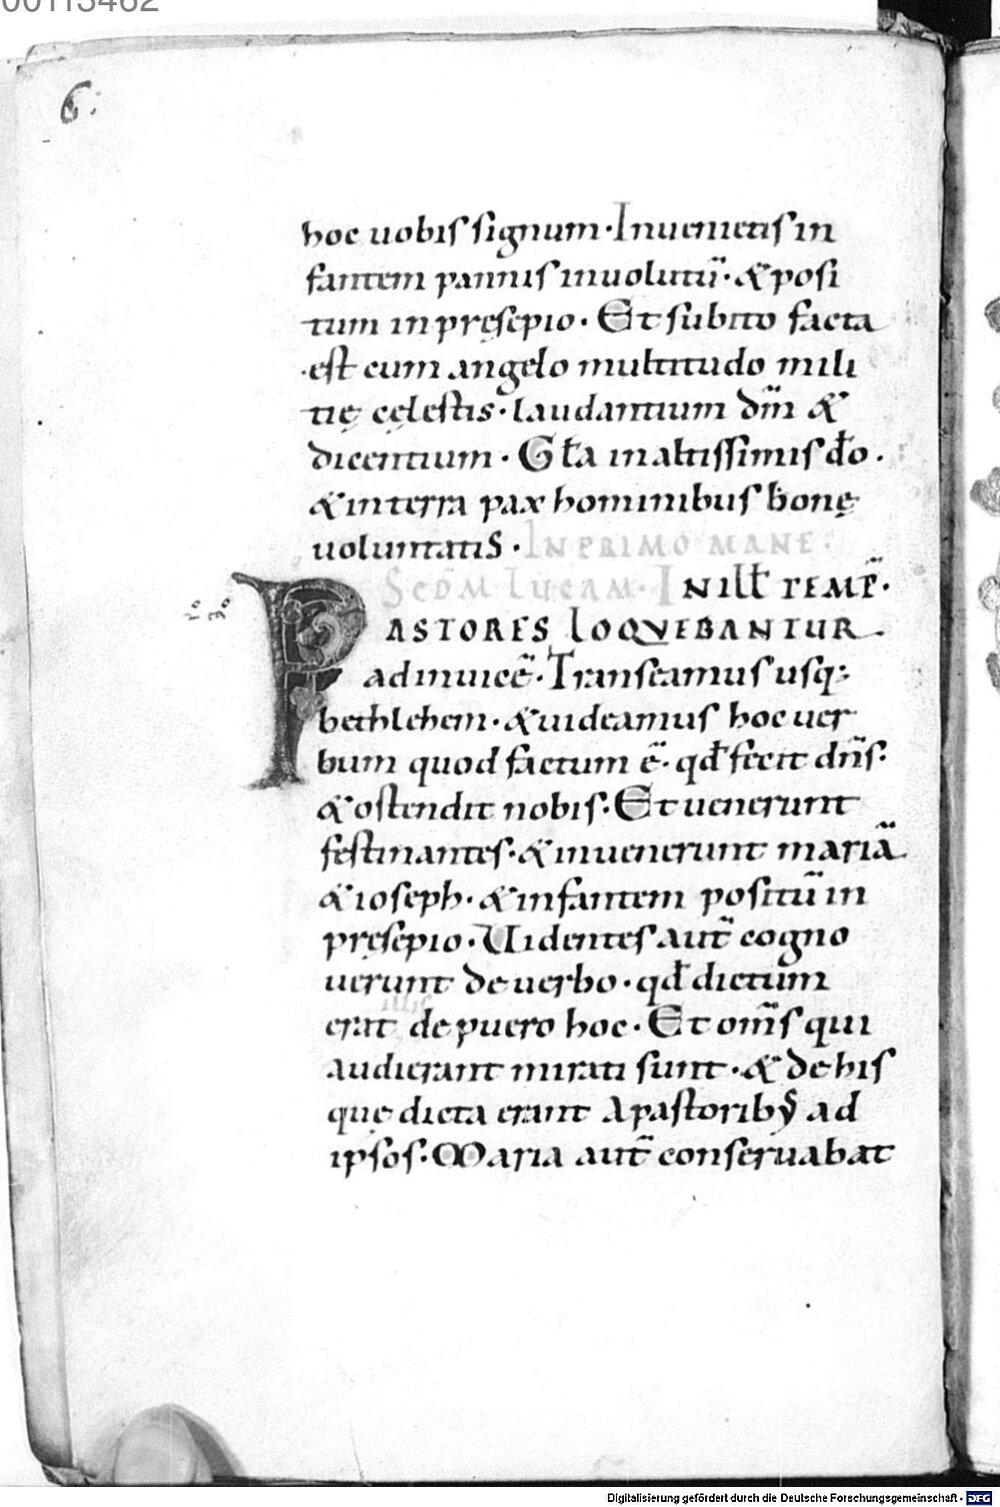 00113462
6.
hoc uobis signum· Inuenietis in
fantem pannis inuolutū· & posi
tum in pręsepio· Et subito facta
·est cum angelo multitudo mili
tię cęlestis· laudantium dm̄ &
dicentium· Gła in altissimis đo·
& in terra pax hominibus bonę
uoluntatis· IN PRIMO MANE·
SCDM̄ LUCAM· IN ILŁ TEMR̄·
PASTORES LOQVEBANTUR·
ad inuicē· Transeamus usq;
bethlehem· & uideamus hoc uer
bum quod factum ē· qđ fecit dn̄s·
& ostendit nobis· Et uenerunt
festinantes· & inuenerunt mariā
& ioseph· & infantem positū in
pręsepio· Uidentes aut̄ cogno
uerunt de uerbo· qđ dictum
illis
erat de puero hoc· Et om̄s qui
audierant mirati sunt· & de his
quę dicta erant a pastoribꝰ ad
ipsos· Maria aut̄ conseruabat
Digitalisierung gefördert durch die Deutsche Forschungsgemeinschaft - DFG